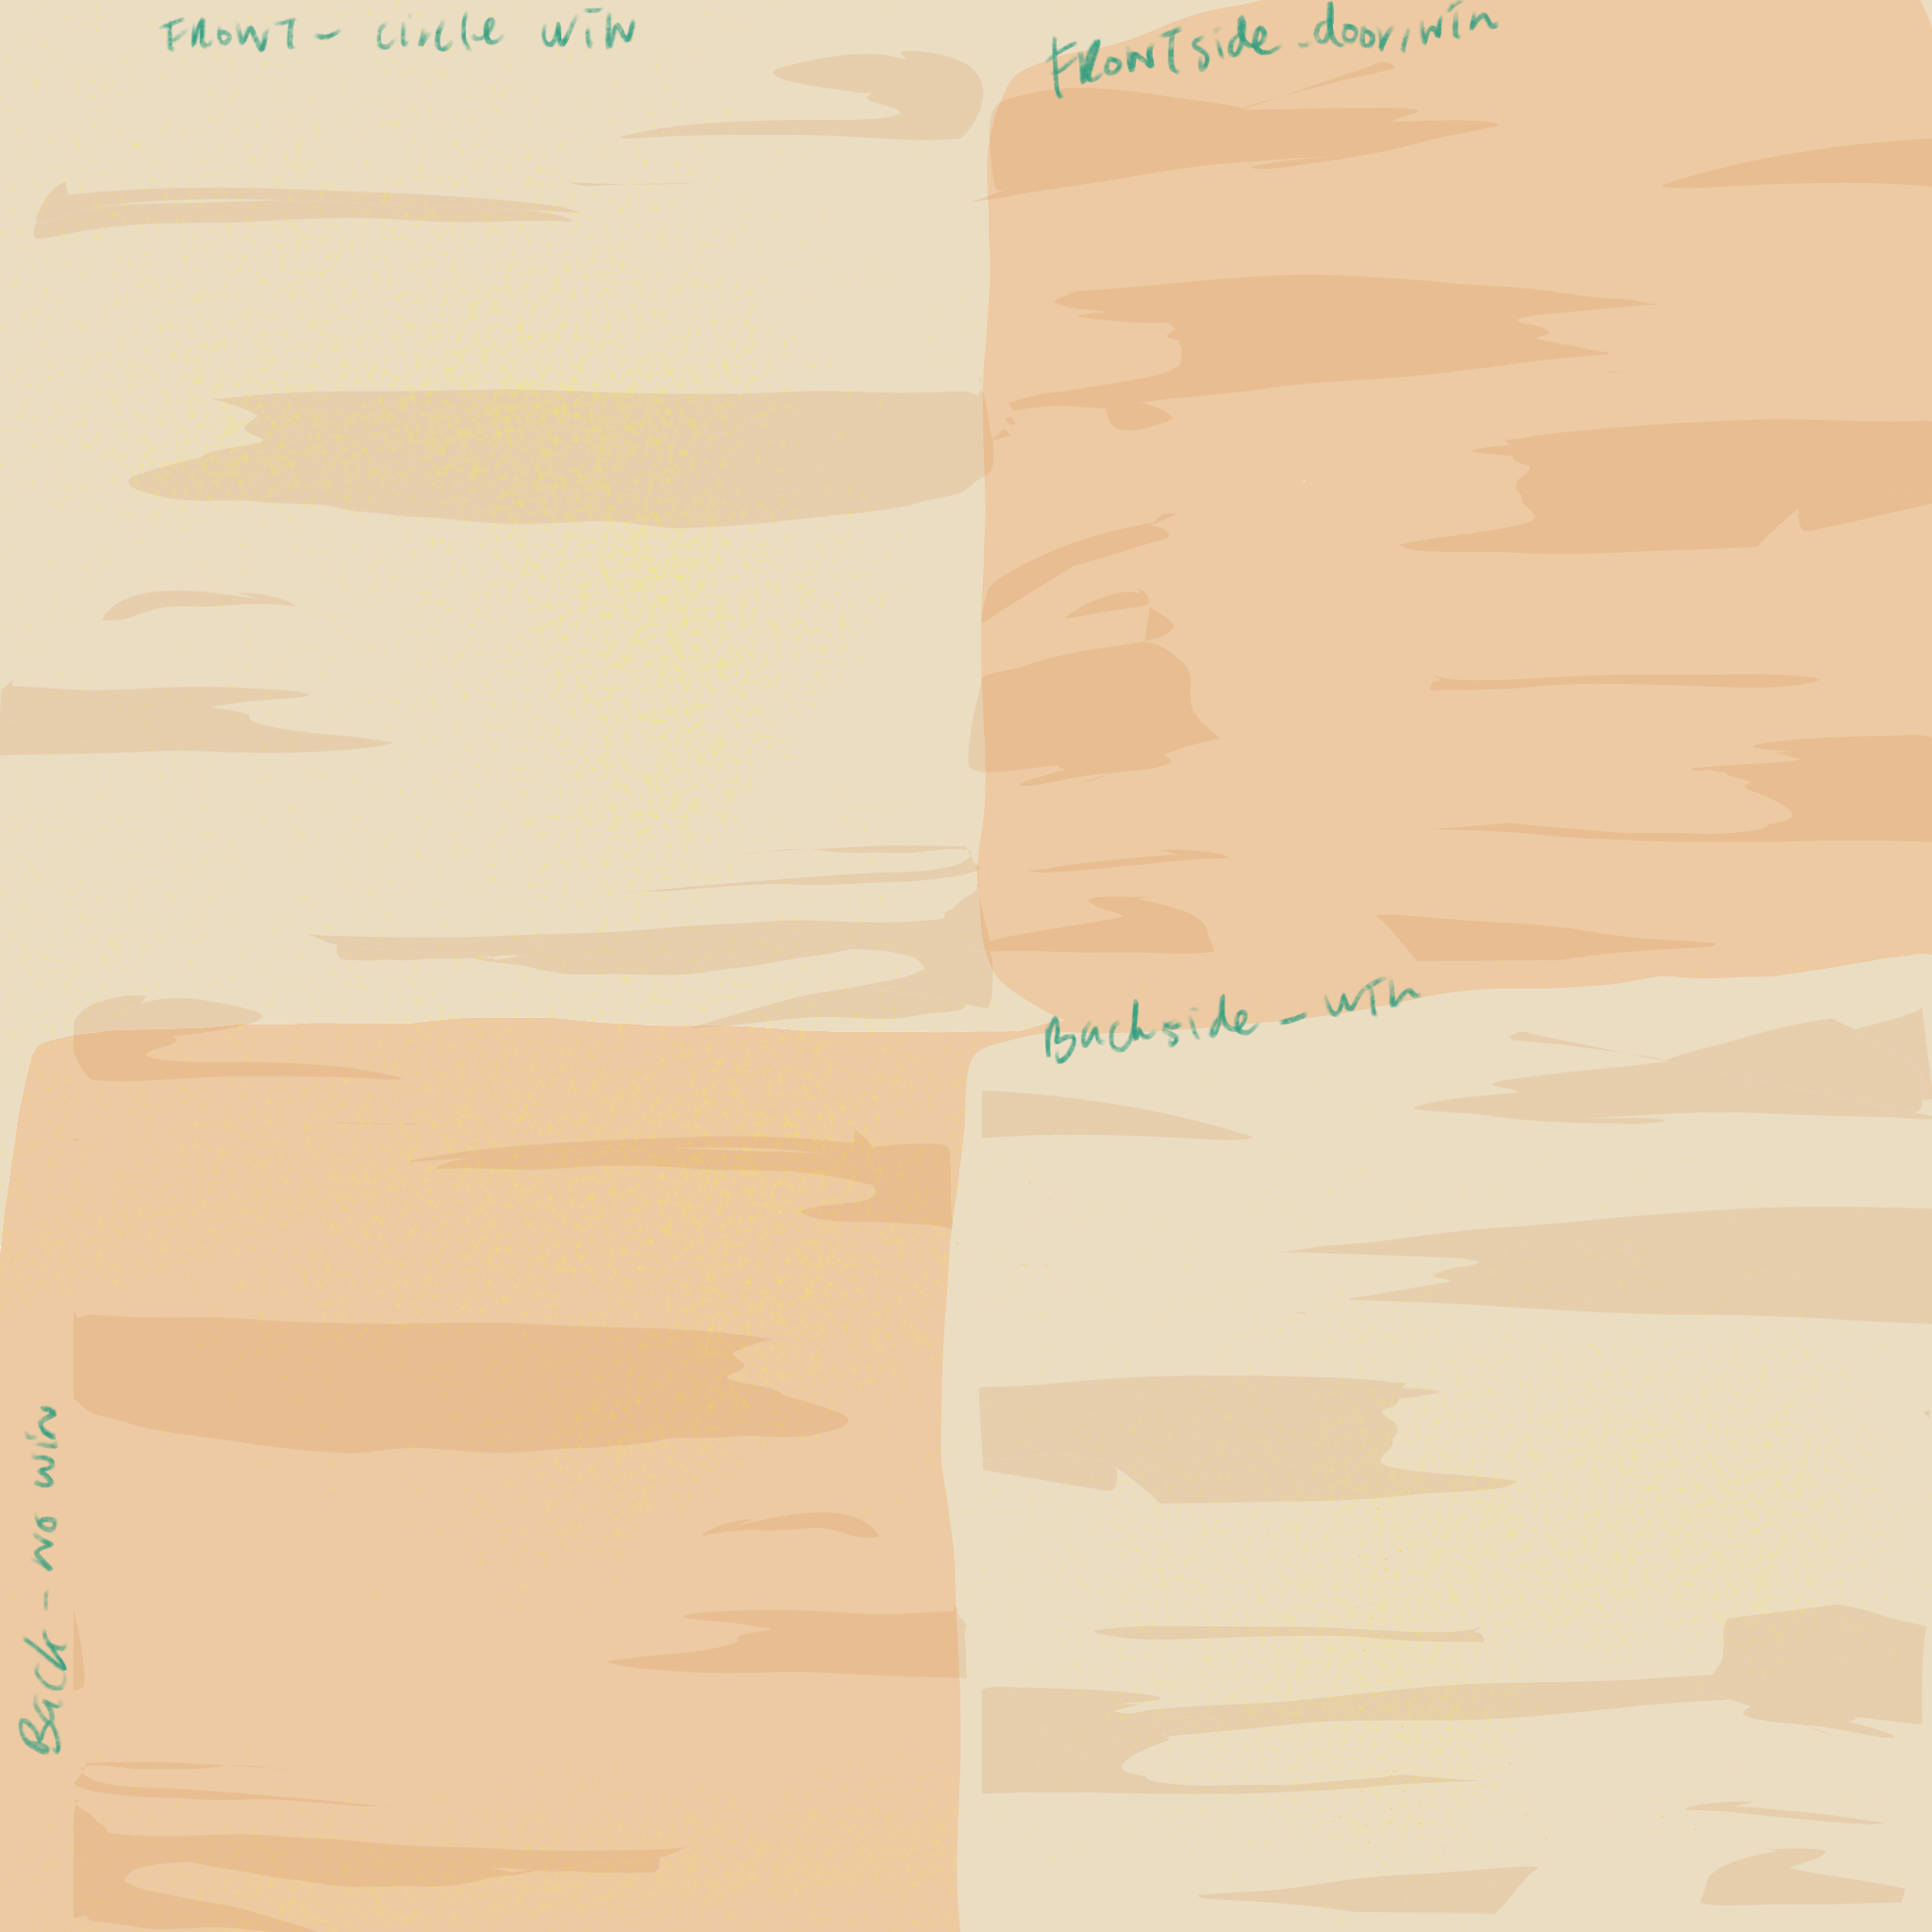 FRONT - circle win
FRONTside - door, win
Backside - win
Back - no win